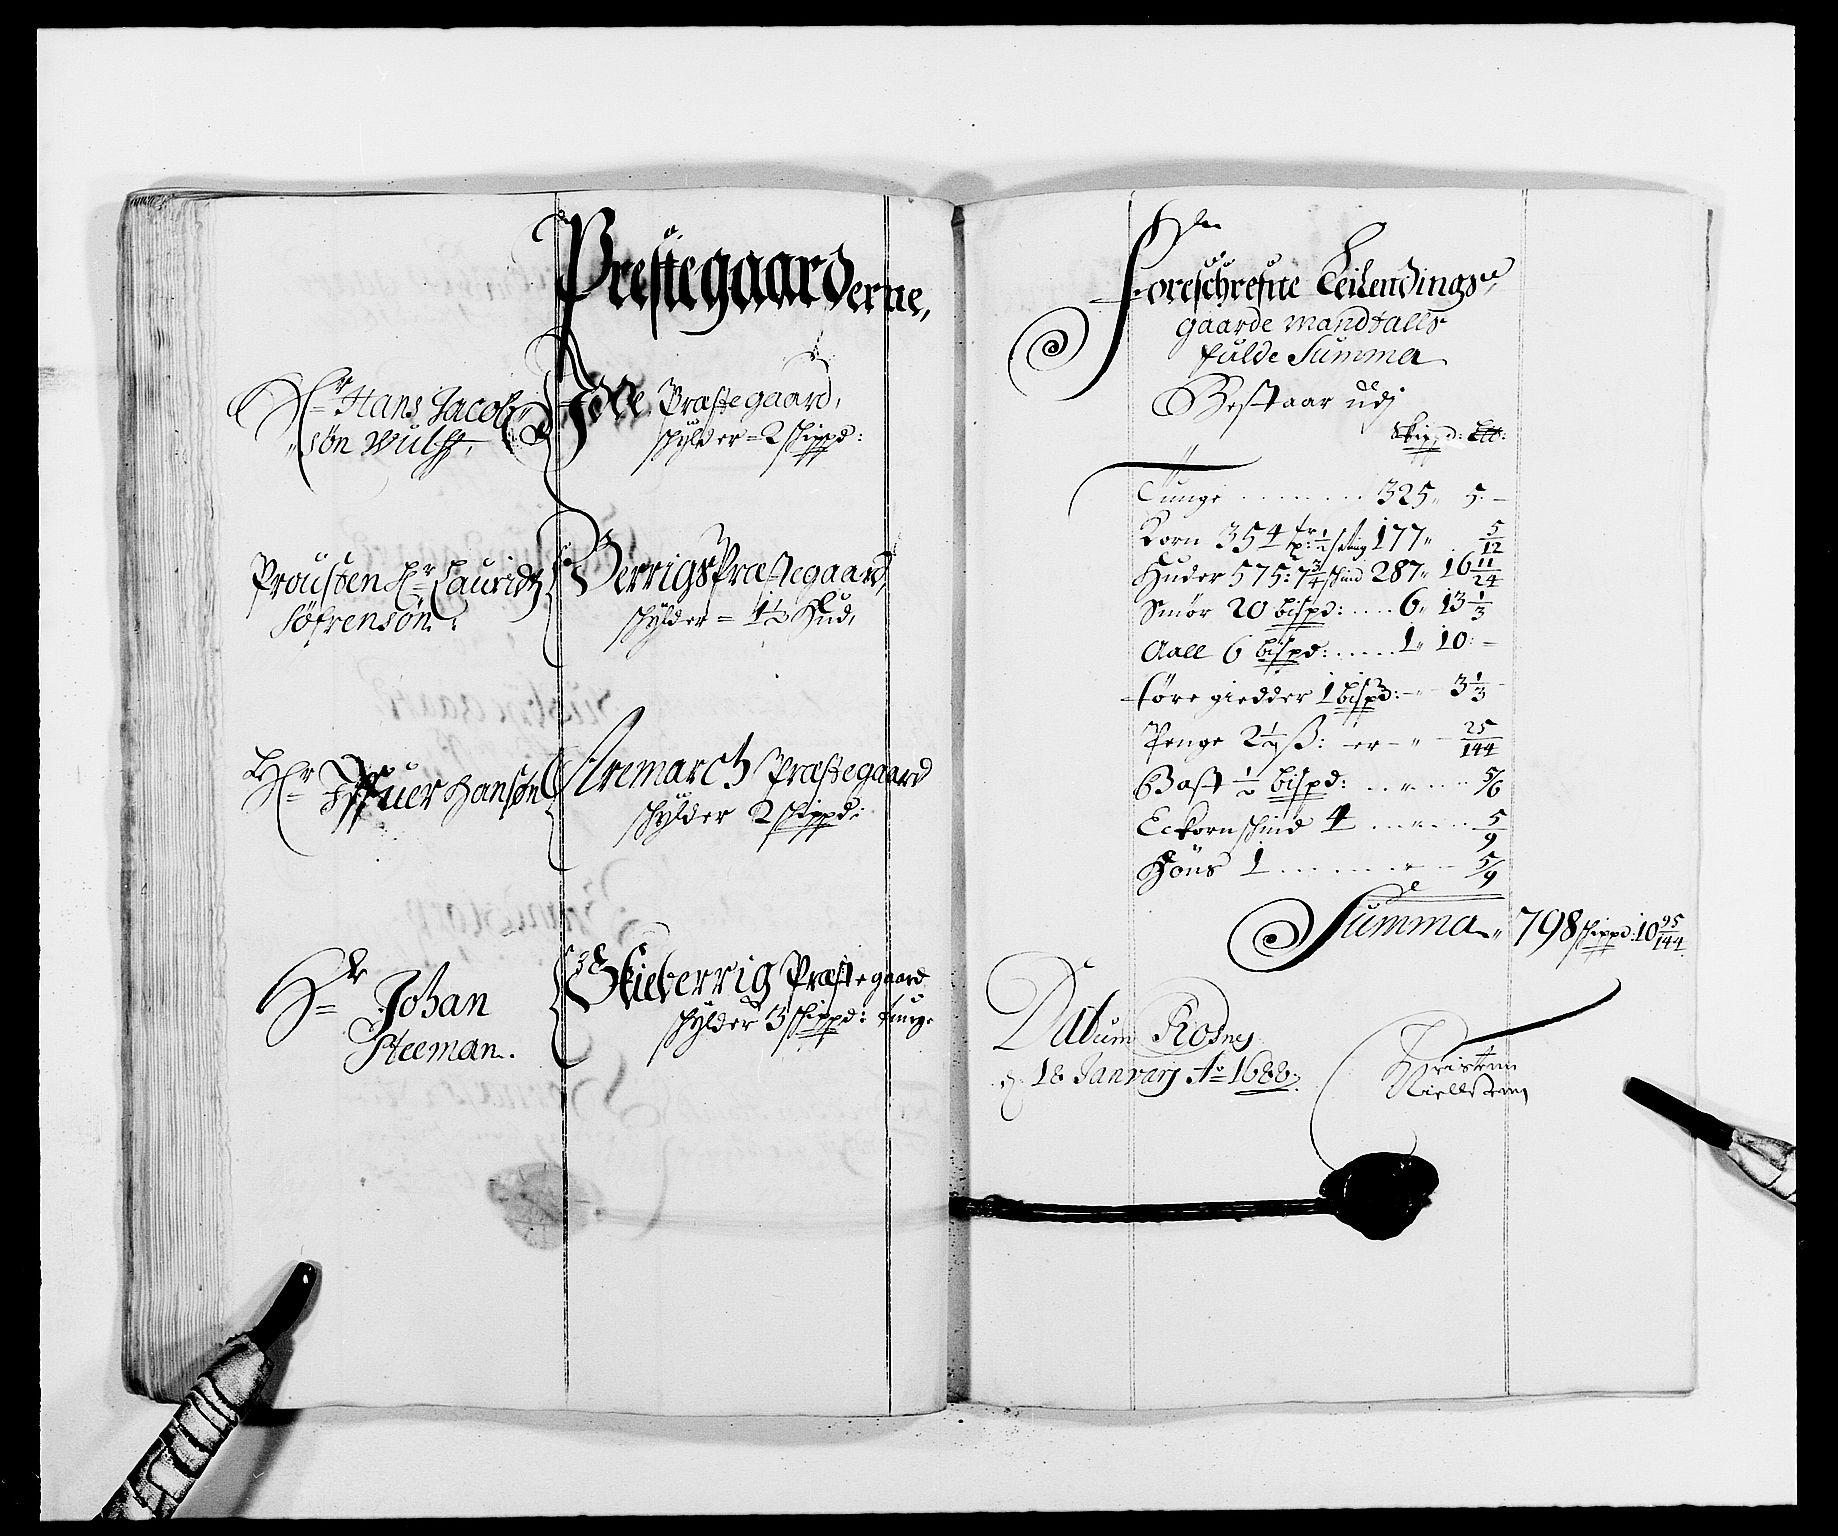 Prestegaarderne,
Hr Hans Jacob
søn Wulff,
Idde Præstegaard,
schylder = 2 schippd:
Prousten Hr Lauridtz
Søfrensøn:
BerrigsPræstegaard,
schylder = 1½ Hud,
Hr Iffuer Hansøn
Aremarch Præstegaard
schylder 2 schippd:
Hr Johan
Steeman.
Skieberrig Præstegaard
schylder 3 schippd: tunge
Foreschrefne Leilendings
gaarde Mandtalls
fulde Summa
Bestaar udj
Skippd: Lit:
Tunge ...... 325 " 5: -
Korn 354 177 " 5/12
Huder 575: 7 3/4 schind 287 " 16 11/24
Smør 20 bispd: .... 6 " 13 1/3
Aall 6 bispd: .... 1 " 10: -
Tøre giedder 1 bispd: - " - 3 1/3
Penge 2½ ß: er - " - 25/144
Bast ½ bispd: .. " ... 5/6
Eckornschind 4 ... " ... 5/9
Høns 1 ...... " -- 5/9
Summa " 798 schippd: 10 95/144
Datum Rosnes
d. 18 Januarj Ao 1688
Kristenn
Niellssenn